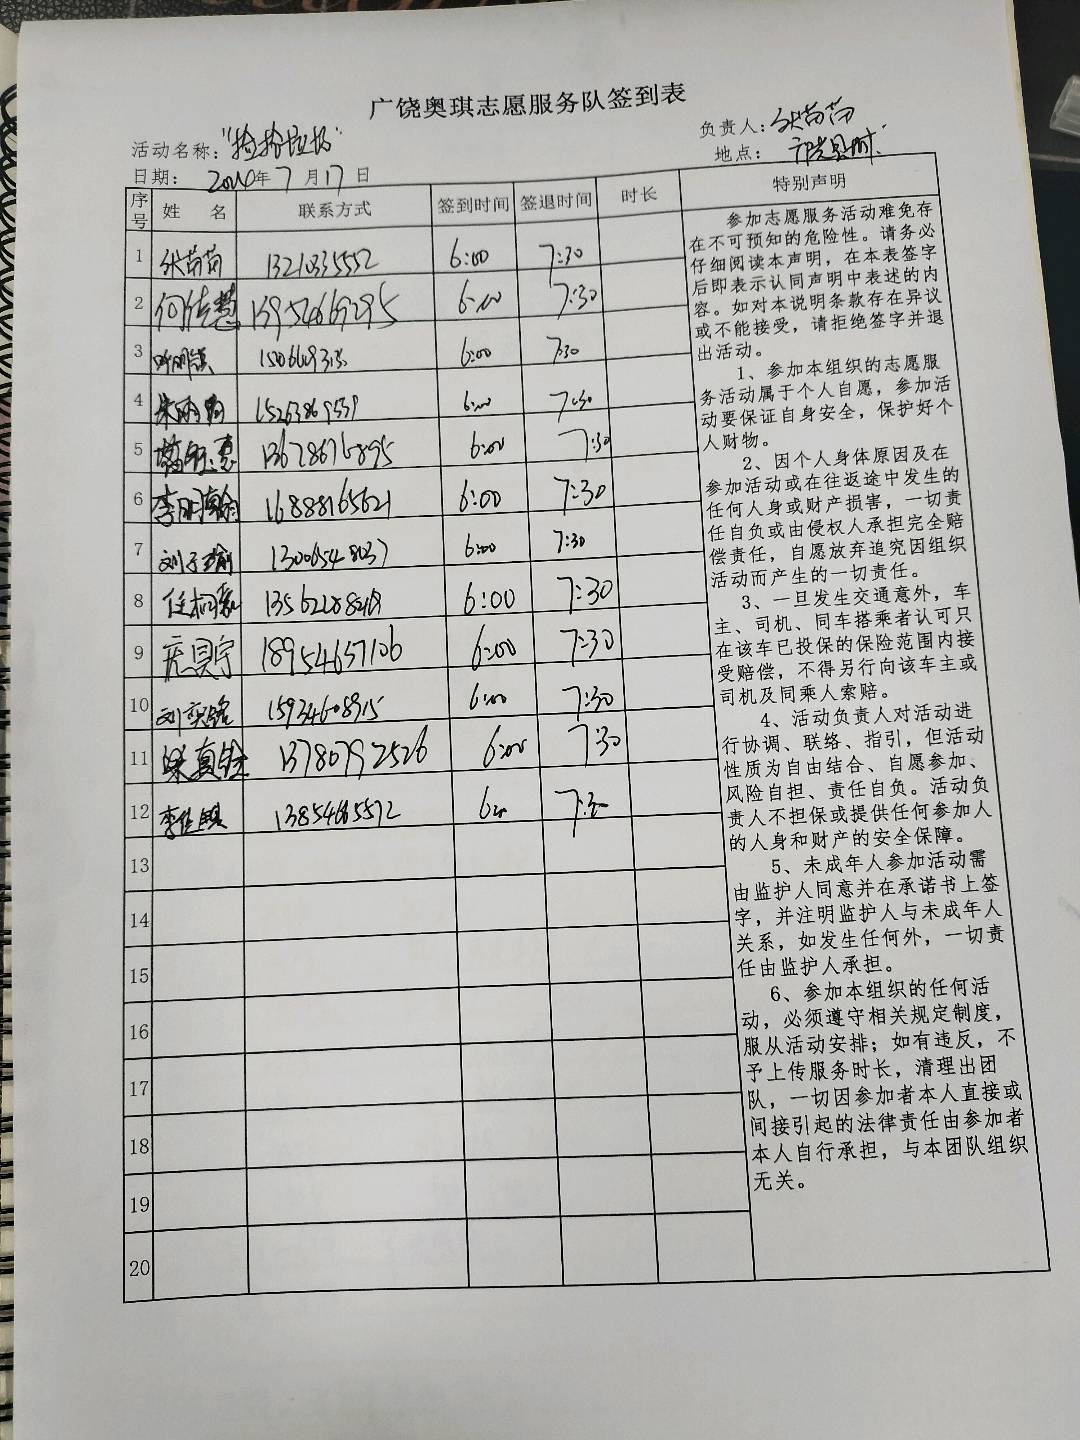 广饶奥琪志愿服务队签到表
活动名称：“捡拾垃圾”
负责人：张苗苗
日期：年7月17日
地点：
序号 姓名 联系方式 签到时间 签退时间 时长 特别声明
1 张苗苗 13210335552 6:00 7:30
2 13954669295 6:00 7:30
3 6:00 7:30
4 15263869539 6:00 7:30
5 13678676895 6:00 7:30
6 李明翰 16888165621 6:00 7:30
7 刘子瑜 13006548037 6:00 7:30
8 6:00 7:30
9 18954657106 6:00 7:30
10 刘奕铭 15934608915 6:00 7:30
11 13780792526 6:00 7:30
12 13854665572
13
14
15
16
17
18
19
20
参加志愿服务活动难免存
在不可预知的危险性。请务必
仔细阅读本声明，在本表签字
后即表示认同声明中表述的内
容。如对本说明条款存在异议
或不能接受，请拒绝签字并退
出活动。
1、参加本组织的志愿服
务活动属于个人自愿，参加活
动要保证自身安全，保护好个
人财物。
2、因个人身体原因及在
参加活动或在往返途中发生的
任何人身或财产损害，一切责
任自负或由侵权人承担完全赔
偿责任，自愿放弃追究因组织
活动而产生的一切责任。
3、一旦发生交通意外，车
主、司机、同车搭乘者认可只
在该车已投保的保险范围内接
受赔偿，不得另行向该车主或
司机及同乘人索赔。
4、活动负责人对活动进
行协调、联络、指引，但活动
性质为自由结合、自愿参加、
风险自担、责任自负。活动负
责人不担保或提供任何参加人
的人身和财产的安全保障。
5、未成年人参加活动需
由监护人同意并在承诺书上签
字，并注明监护人与未成年人
关系，如发生任何外，一切责
任由监护人承担。
6、参加本组织的任何活
动，必须遵守相关规定制度，
服从活动安排；如有违反，不
予上传服务时长，清理出团
队，一切因参加者本人直接或
间接引起的法律责任由参加者
本人自行承担，与本团队组织
无关。